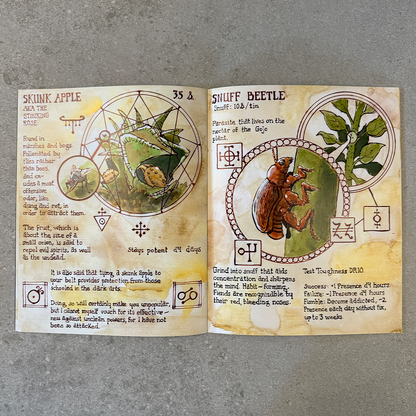 SKUNK APPLE
AKA THE
STINKING
ROSE
35 &
Found in
marshes and bogs.
Pollinated by
flies rather
than bees,
and ex-
udes a most
offensive
odor, like
dung and rot, in
order to attract them.
The fruit, which is
about the size of a
small onion, is said to
repel evil spirits, as well
as the undead.
Stays potent d4 days
It is also said that tying a skunk apple to
your belt provides protection from those
schooled in the dark arts.
Doing so will certainly make you unpopular,
but I cannot myself vouch for its effective-
ness against unclean powers, for I have not
been so attacked.
SNUFF BEETLE
Snuff: 10&/tin
Parasite that lives on the
nectar of the Goje
plant.
Grind into snuff that aids
concentration and sharpens
the mind. Habit-forming.
Fiends are recognizable by
their red, bleeding noses.
Test Toughness DR10.
Success: +1 Presence d4 hours
Failure: -1 Presence d4 hours
Fumble: Become addicted, -2
Presence each day without fix,
up to 3 weeks